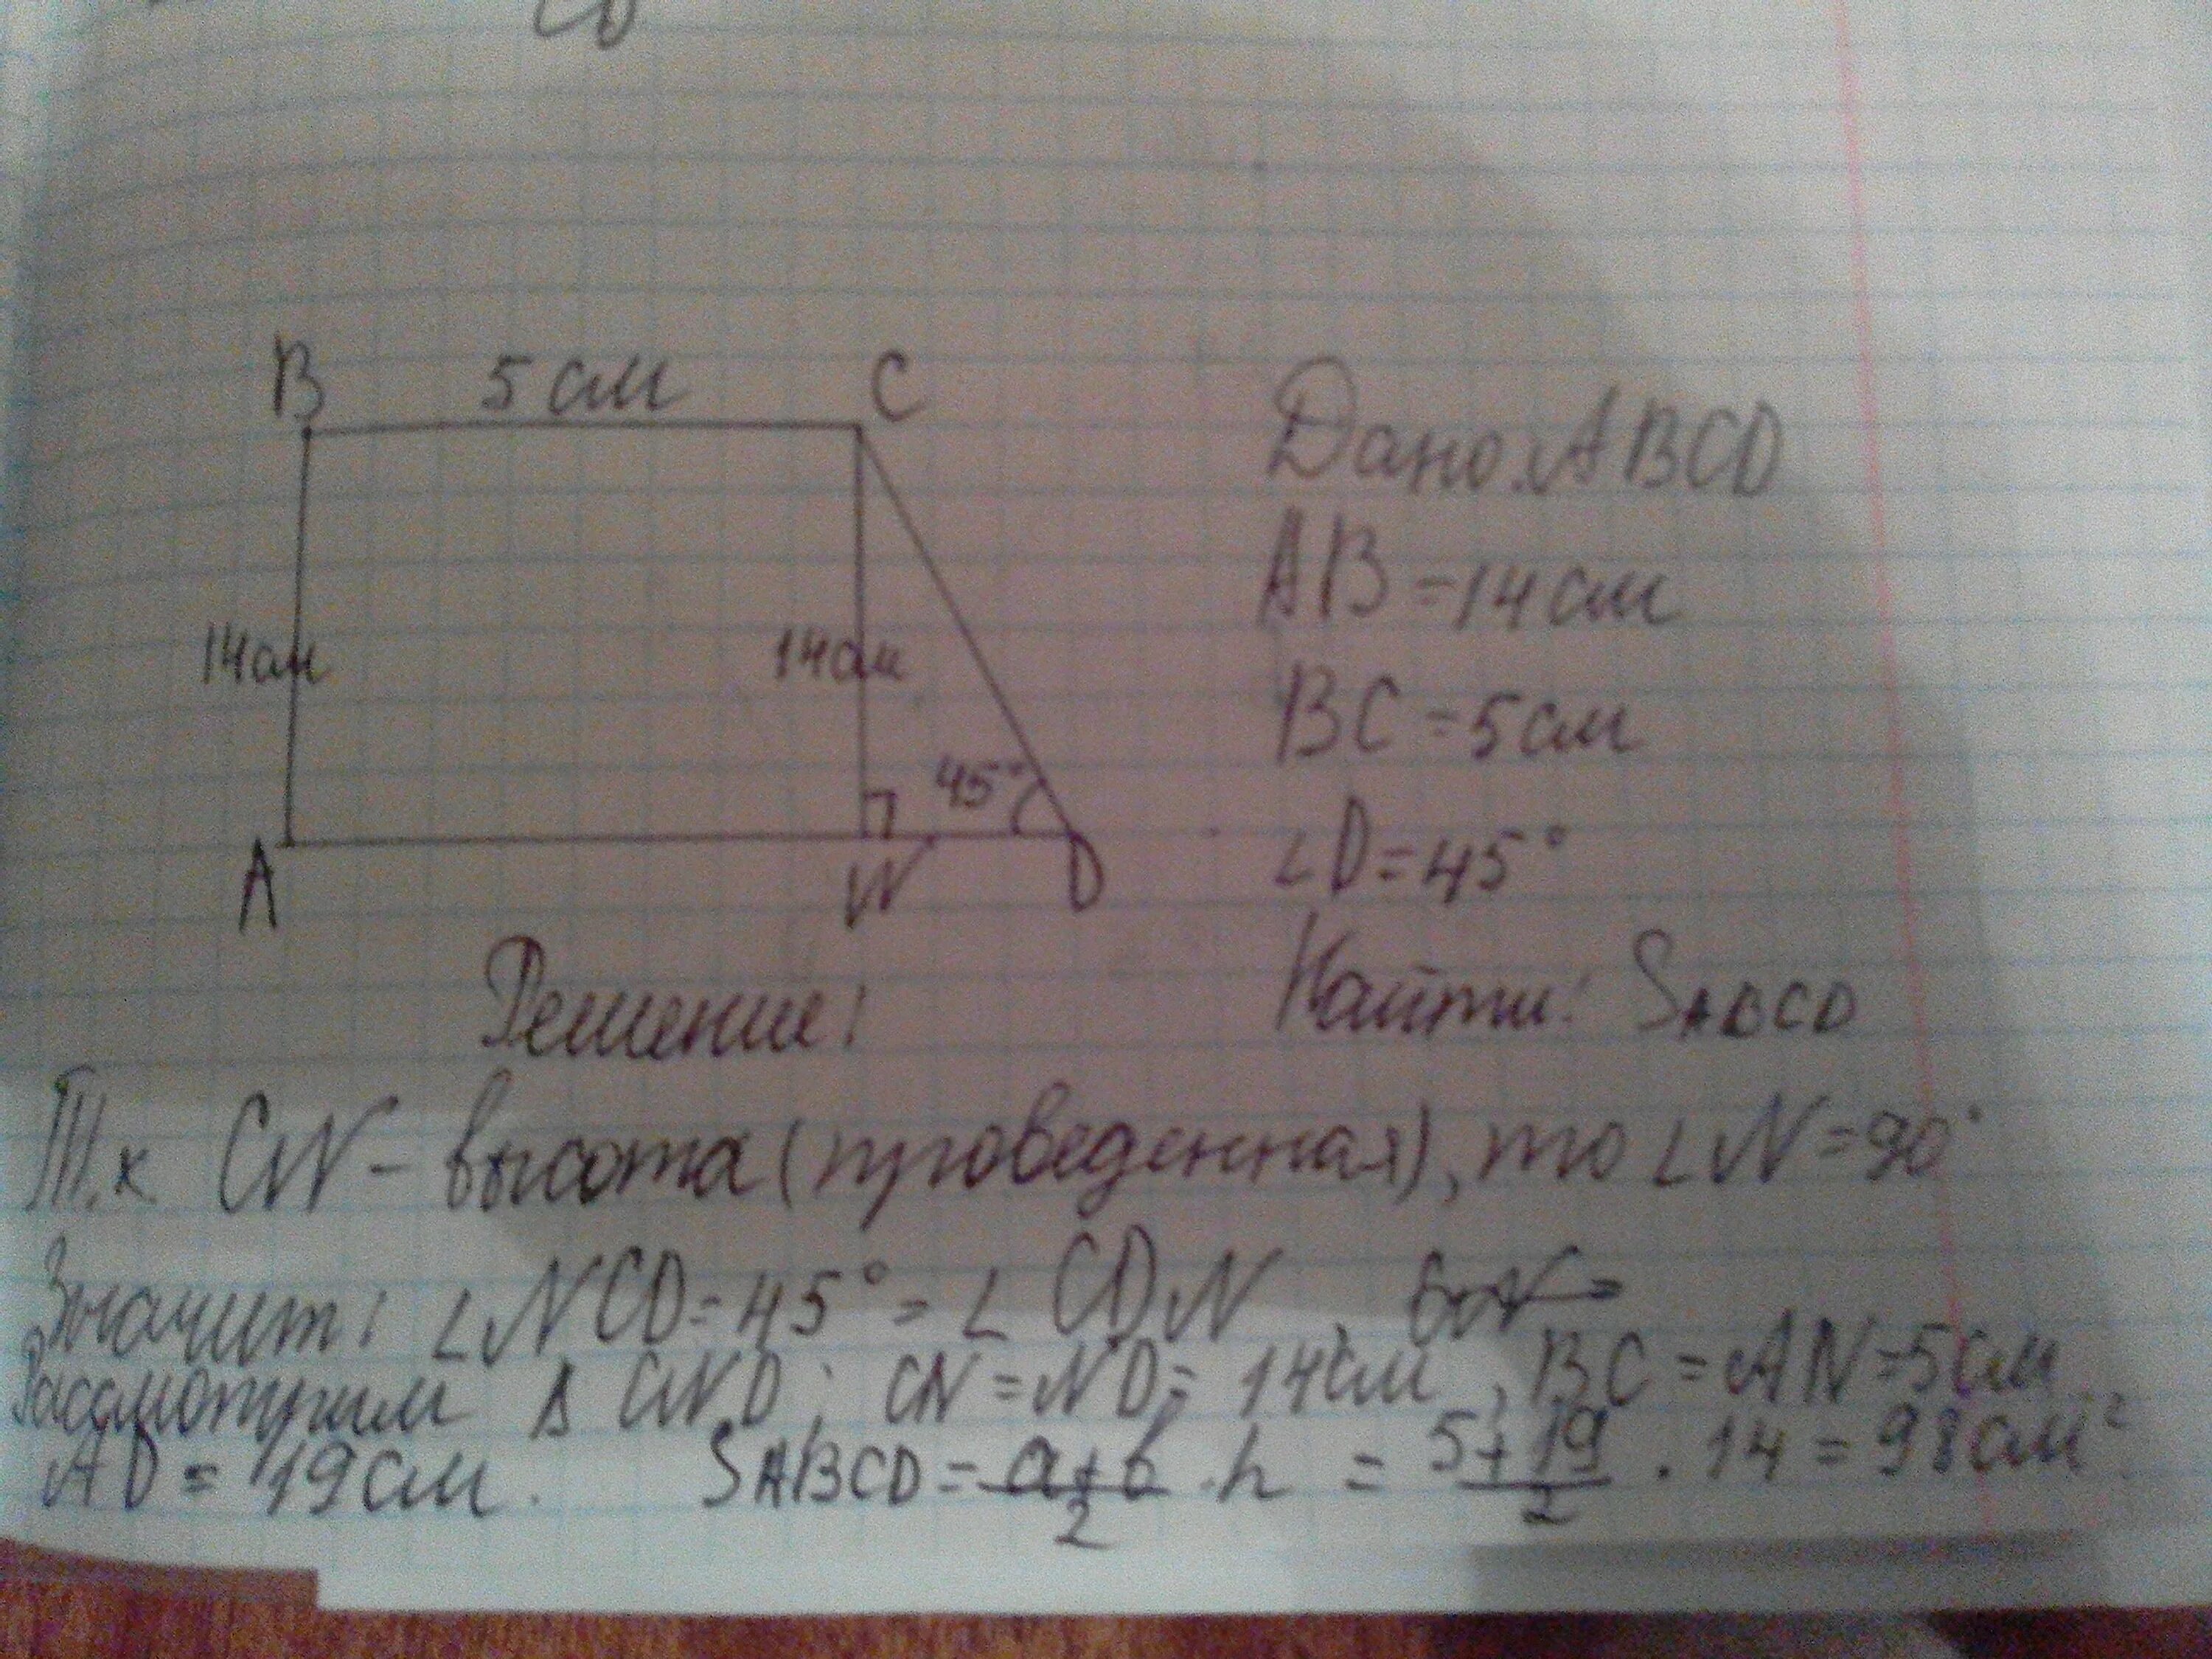 B 5 см C
Дано: ABCD
AB = 14 см
14 см 14 см
BC = 5 см
45°
∠D = 45°
A N D
Найти: SABCD
Решение:
Т.к. CN - высота (проведенная), то ∠N = 90°
Значит: ∠NCD = 45° = ∠CDN,
Рассмотрим Δ CND: CN = ND = 14 см, BC = AN = 5 см
AD = 19 см. SABCD = a+b/2 · h = 5+19/2 · 14 = 98 см²